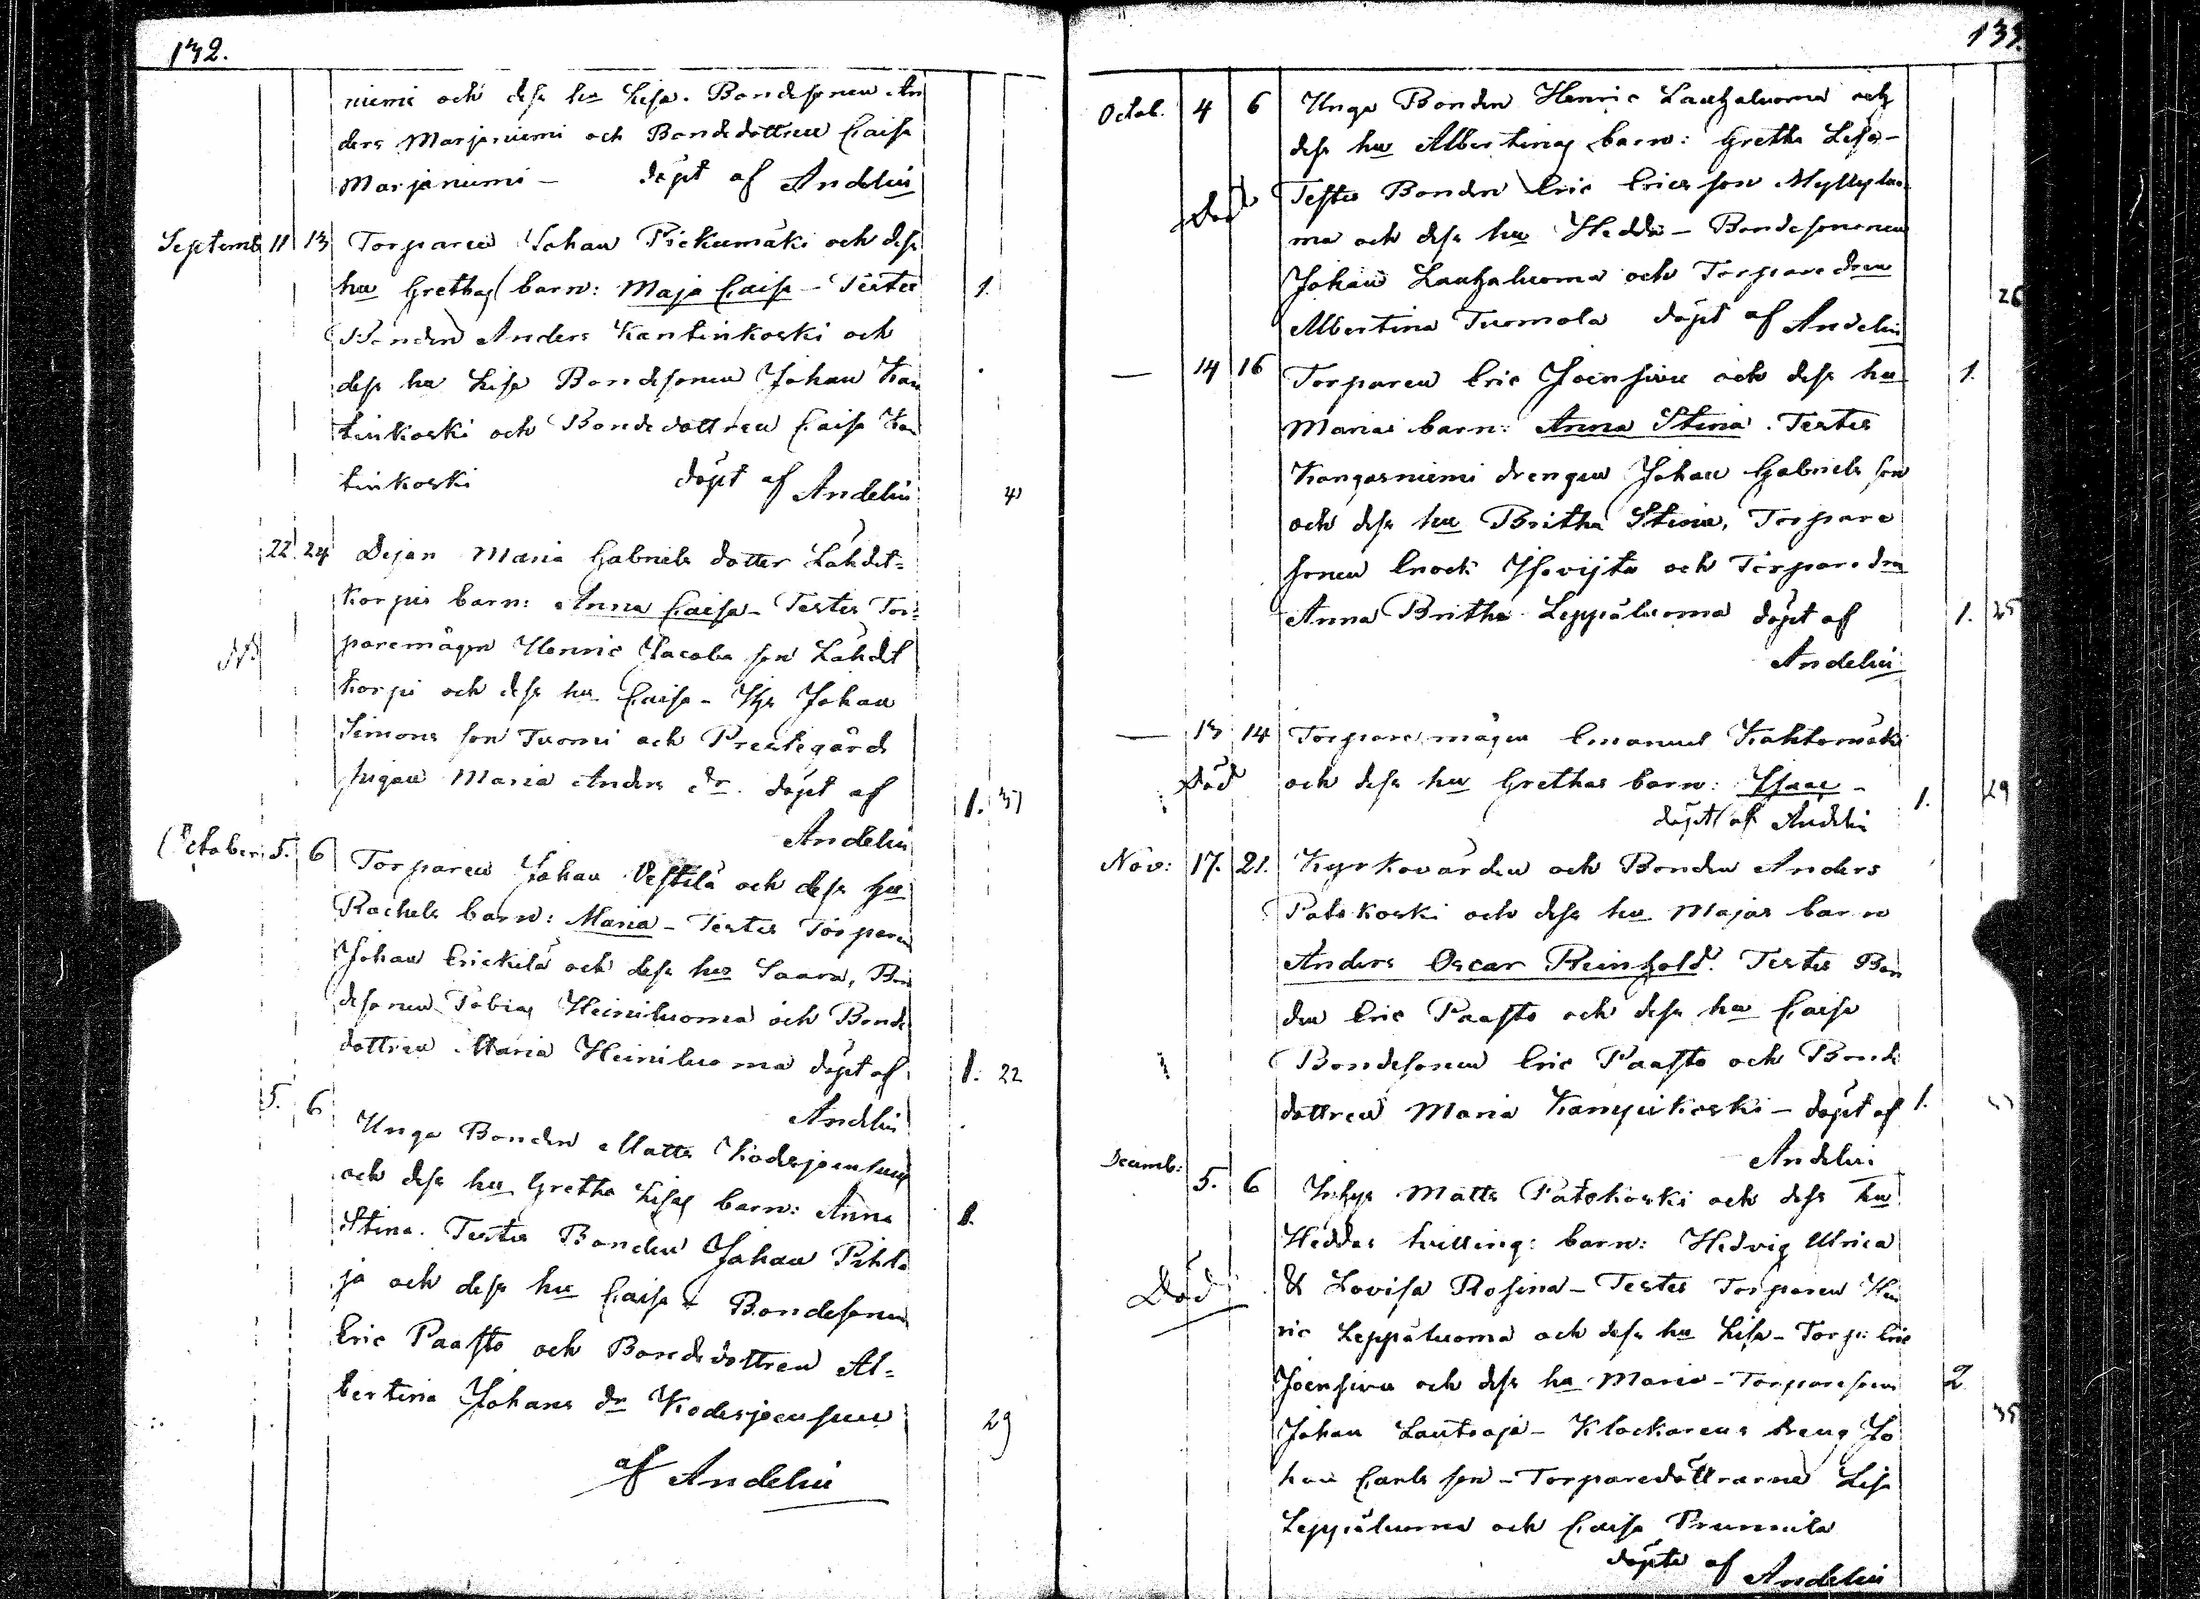 132.
niemi och dess hu Lisa. Bondesonen An
ders Marjaniemi och Bondedottren Caisa
Marjaniemi - döpt af Andelin
Septemb 11 13 Torparen Johan Pickumäki och dess
hu Grethas barn: Maja Caisa - Testes 1.
Bonden Anders Kantinkoski och
dess hu Lisa Bondesonen Johan Kan
tinkoski och Bondedottren Caisa Kan
tinkoski döpt af Andelin
22 24 Dejan Maria Gabriels dotter Lähdet=
korpis barn: Anna Caisa - Testes Tor=
paremågen Henric Jacobs son Lähdet
korpi och dess hu Caisa - Johan
Simons son Tuomi och Prestegårds
pigan Maria Anders dr. döpt af 1. 37
Andelin
October 5. 6 Torparen Johan Västilä och dess hu
Rachels barn: Maria - Testes Torparen
Johan Erickilä och dess hu Saara, Bon
desonen Tobias Heiniluoma och Bonde
dottren Maria Heiniluoma döpt af 1. 22
Andelin
5. 6 Unga Bonden Matts Kodesjoensuu
och dess hu Gretha Lisas barn: Anna 1.
Stina. Testes Bonden Johan Pihla
ja och dess hu Caisa - Bondesonen
Eric Paasto och Bondedottren Al=
bertina Johans dr Kodesjoensuu 29
af Andelin
133.
Octob. 4 6 Unga Bonden Henric Lauhaluoma och
dess hu Albertinas barn: Gretha Lisa -
Död Testes Bonden Eric Ericsson Myllyluo
ma och dess hu Hedda - Bondesonen
Johan Lauhaluoma och Torparedren 26
Albertina Tuomola döpt af Andelin
— 14 16 Torparen Eric Joensuu och dess hu 1.
Marias barn: Anna Stina. Testes
Kangasniemi drengen Johan Gabriels son
och dess hu Britha Stina, Torpare
sonen Enock Isovijta och Torparedrn
Anna Britha Leppäluoma döpt af 1. 25
Andelin
— 13 14 Torparemågen Emanuel Kahtomäki
Död och dess hu Grethas barn: Isaac - 1. 29
döpt af Andelin
Nov: 17. 21. Kyrkovärden och Bonden Anders
Patokoski och dess hu Majas barn
Anders Oscar Reinhold. Testes Bon
den Eric Paasto och dess hu Caisa
Bondesonen Eric Paasto och Bonde
dottren Maria Kampikoski - döpt af 1.
Andelin
Decemb: 5. 6 Inhys Matts Patokoski och dess hu
Heddas tvilling: barn: Hedvig Ulrica
Död & Lovisa Rosina - Testes Torparen Hen
ric Leppäluoma och dess hu Lisa - Torp: Eric
Joensuu och dess hu Maria - Torparesonen 2
Johan Lautaoja - Klockarens dreng Jo 35
han Carls son - Torparedöttrarna Lisa
Leppäluoma och Caisa Prunnila
döpte af Andelin